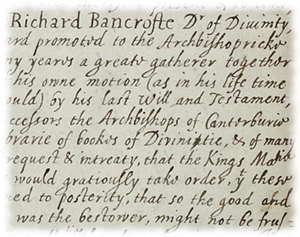 Richard Bancrofte Dr of Divinity,
and promoted to the Archbishopricke
ny yeares a greate gatherer together
his owne motion (as in his life time
ould) by his last Will and Testament,
ccessors the Archbishops of Canterburie
brarie of bookes of Divinitie, & of many
request & intreaty, that the Kings Matie
would gratiously take order, yt these
ued to posterity, that so the good and
was the bestower, might not be frus-